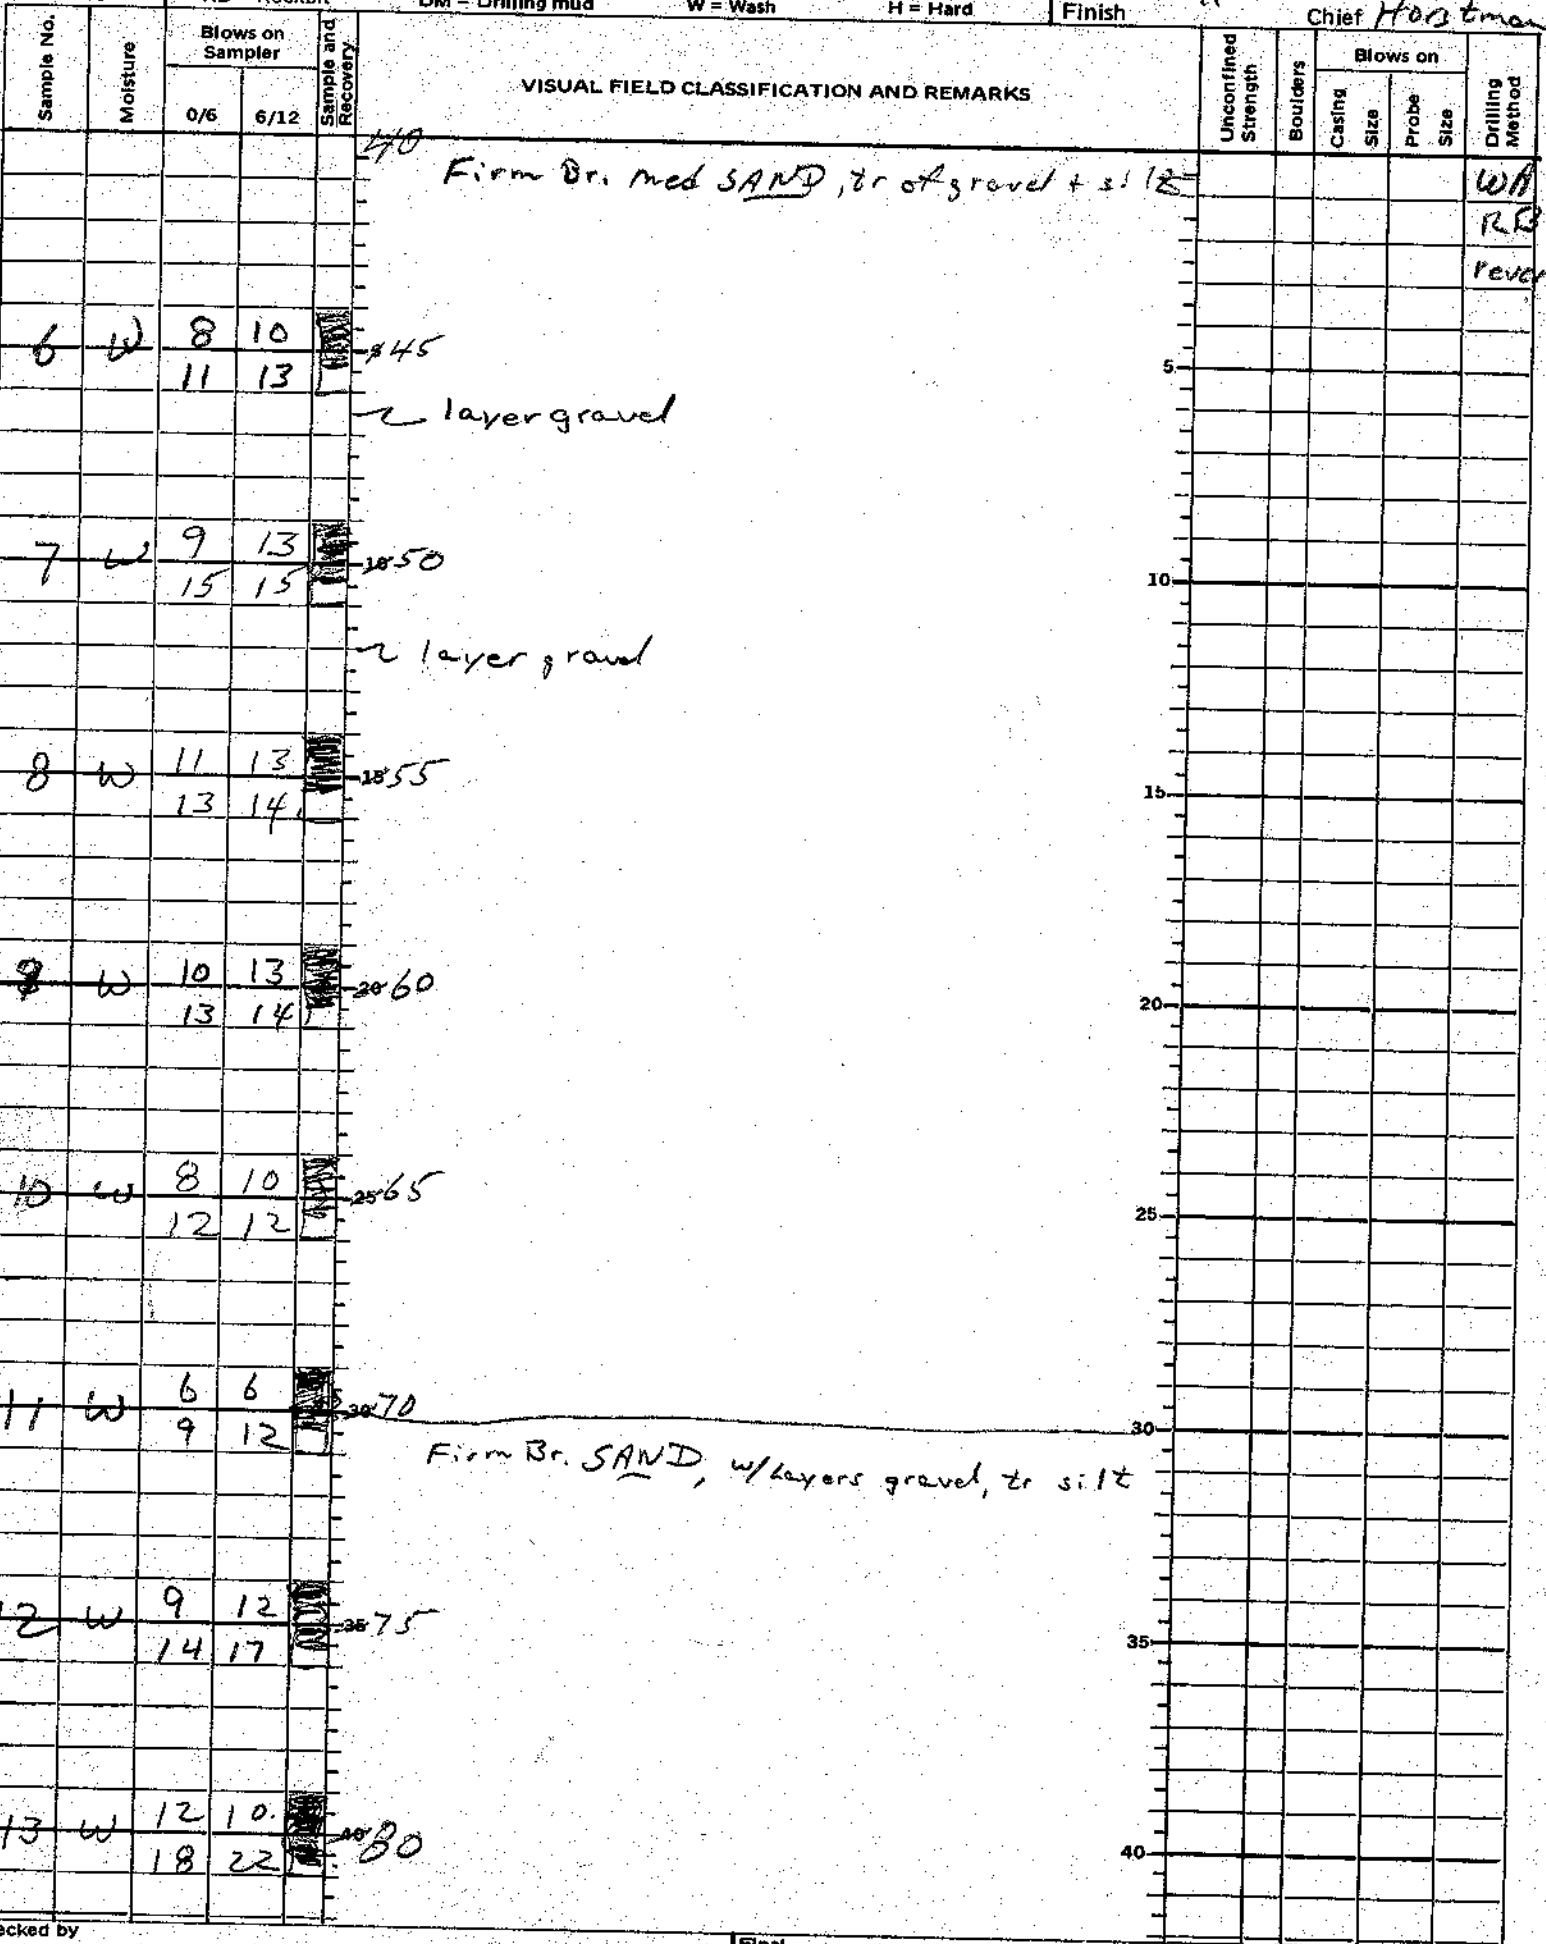 DM = Drilling mud W = Wash H = Hard Finish Chief Horstman
Sample No. Moisture Blows on Sampler 0/6 6/12 Sample and Recovery VISUAL FIELD CLASSIFICATION AND REMARKS Unconfined Strength Boulders Blows on Casing Size Probe Size Drilling Method
40
Firm Br. med SAND, tr of gravel + silt WA
RB
rever
8 10
6 W 45 5
11 13
layer gravel
9 13
7 W 10 50 10
15 15
layer gravel
11 13
8 W 15 55 15
13 14
10 13
9 W 20 60 20
13 14
8 10
10 W 25 65 25
12 12
6 6
11 W 30 70 30
9 12
Firm Br. SAND, w/Layers gravel, tr silt
9 12
12 W 35 75 35
14 17
12 10
13 W 40 80 40
18 22
ecked by